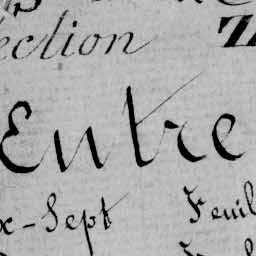 ection
Entre
x-Sept Feuil